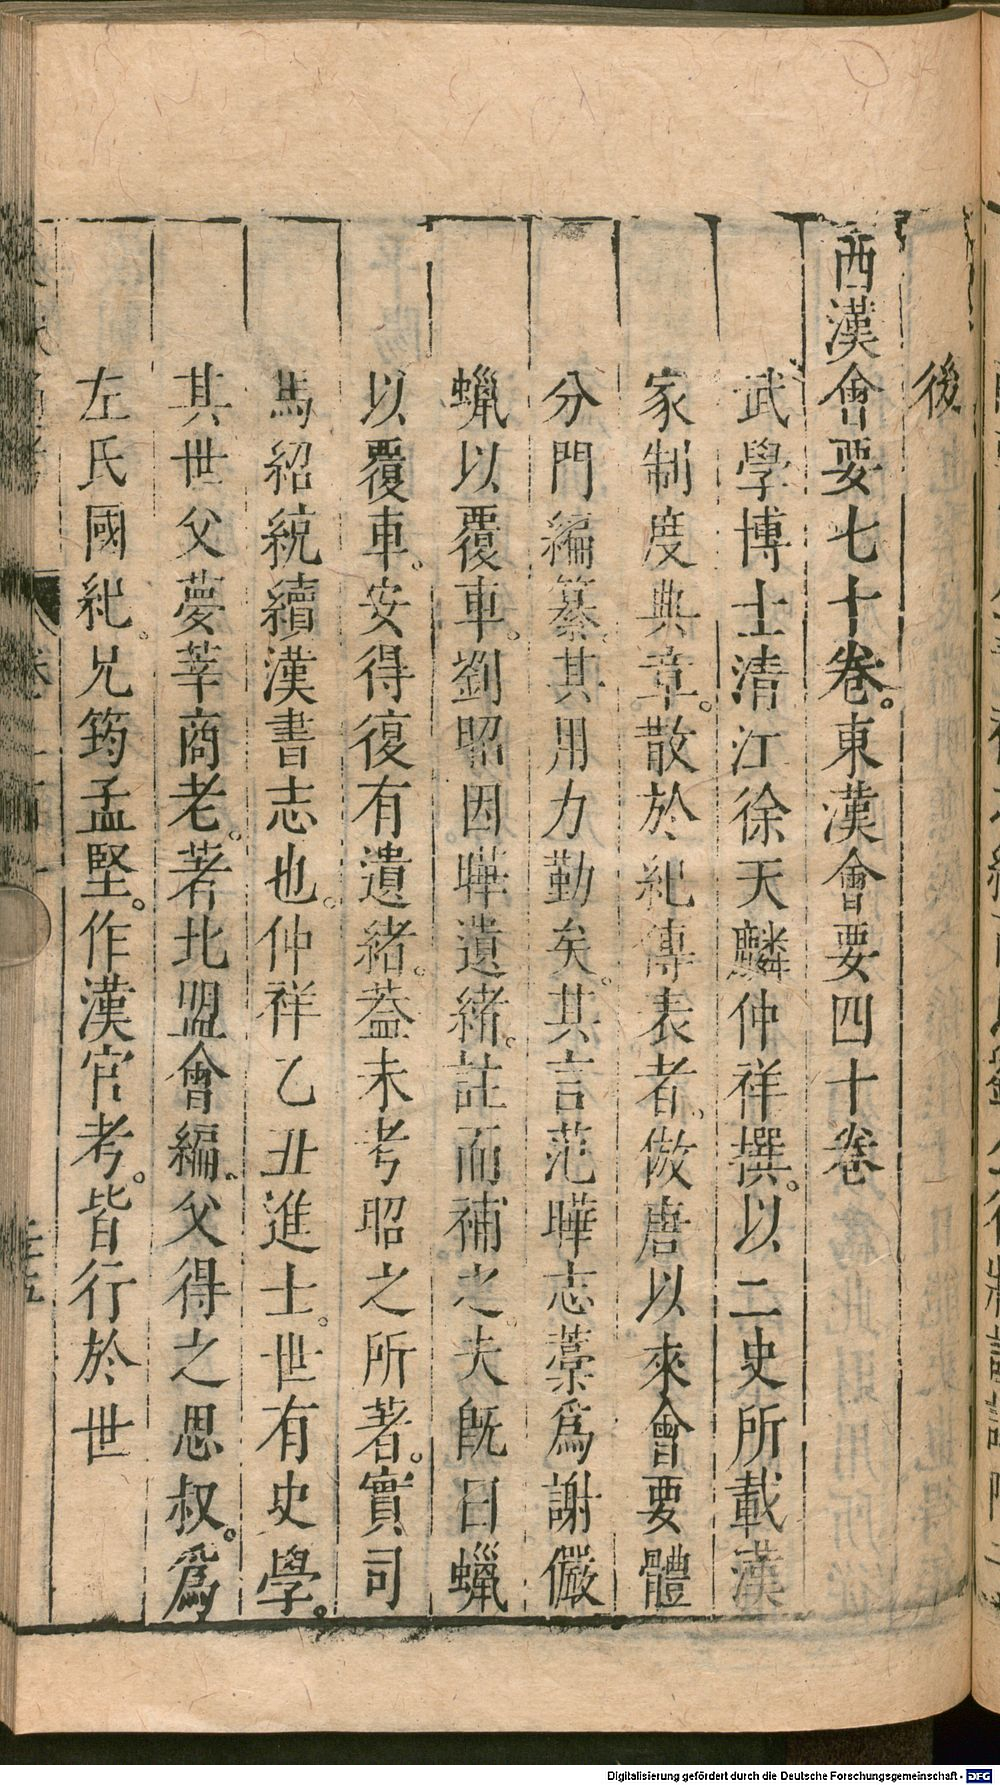 後
西漢會要七十卷。東漢會要四十卷
武學博士清江徐天麟仲祥撰。以二史所載漢
家制度典章。散於紀傳表者、倣唐以來會要體
分門編纂。其用力勤矣。其言范曄志藁爲謝儼
蠟以覆車。劉昭因曄遺緒。註而補之。夫既曰蠟
以覆車。安得復有遺緒。蓋未考昭之所著。實司
馬紹統續漢書志也。仲祥乙丑進士。世有史學。
其世父夢莘商老。著北盟會編。父得之思叔。爲
左氏國紀。兄筠孟堅。作漢官考。皆行於世
Digitalisierung gefördert durch die Deutsche Forschungsgemeinschaft - DFG